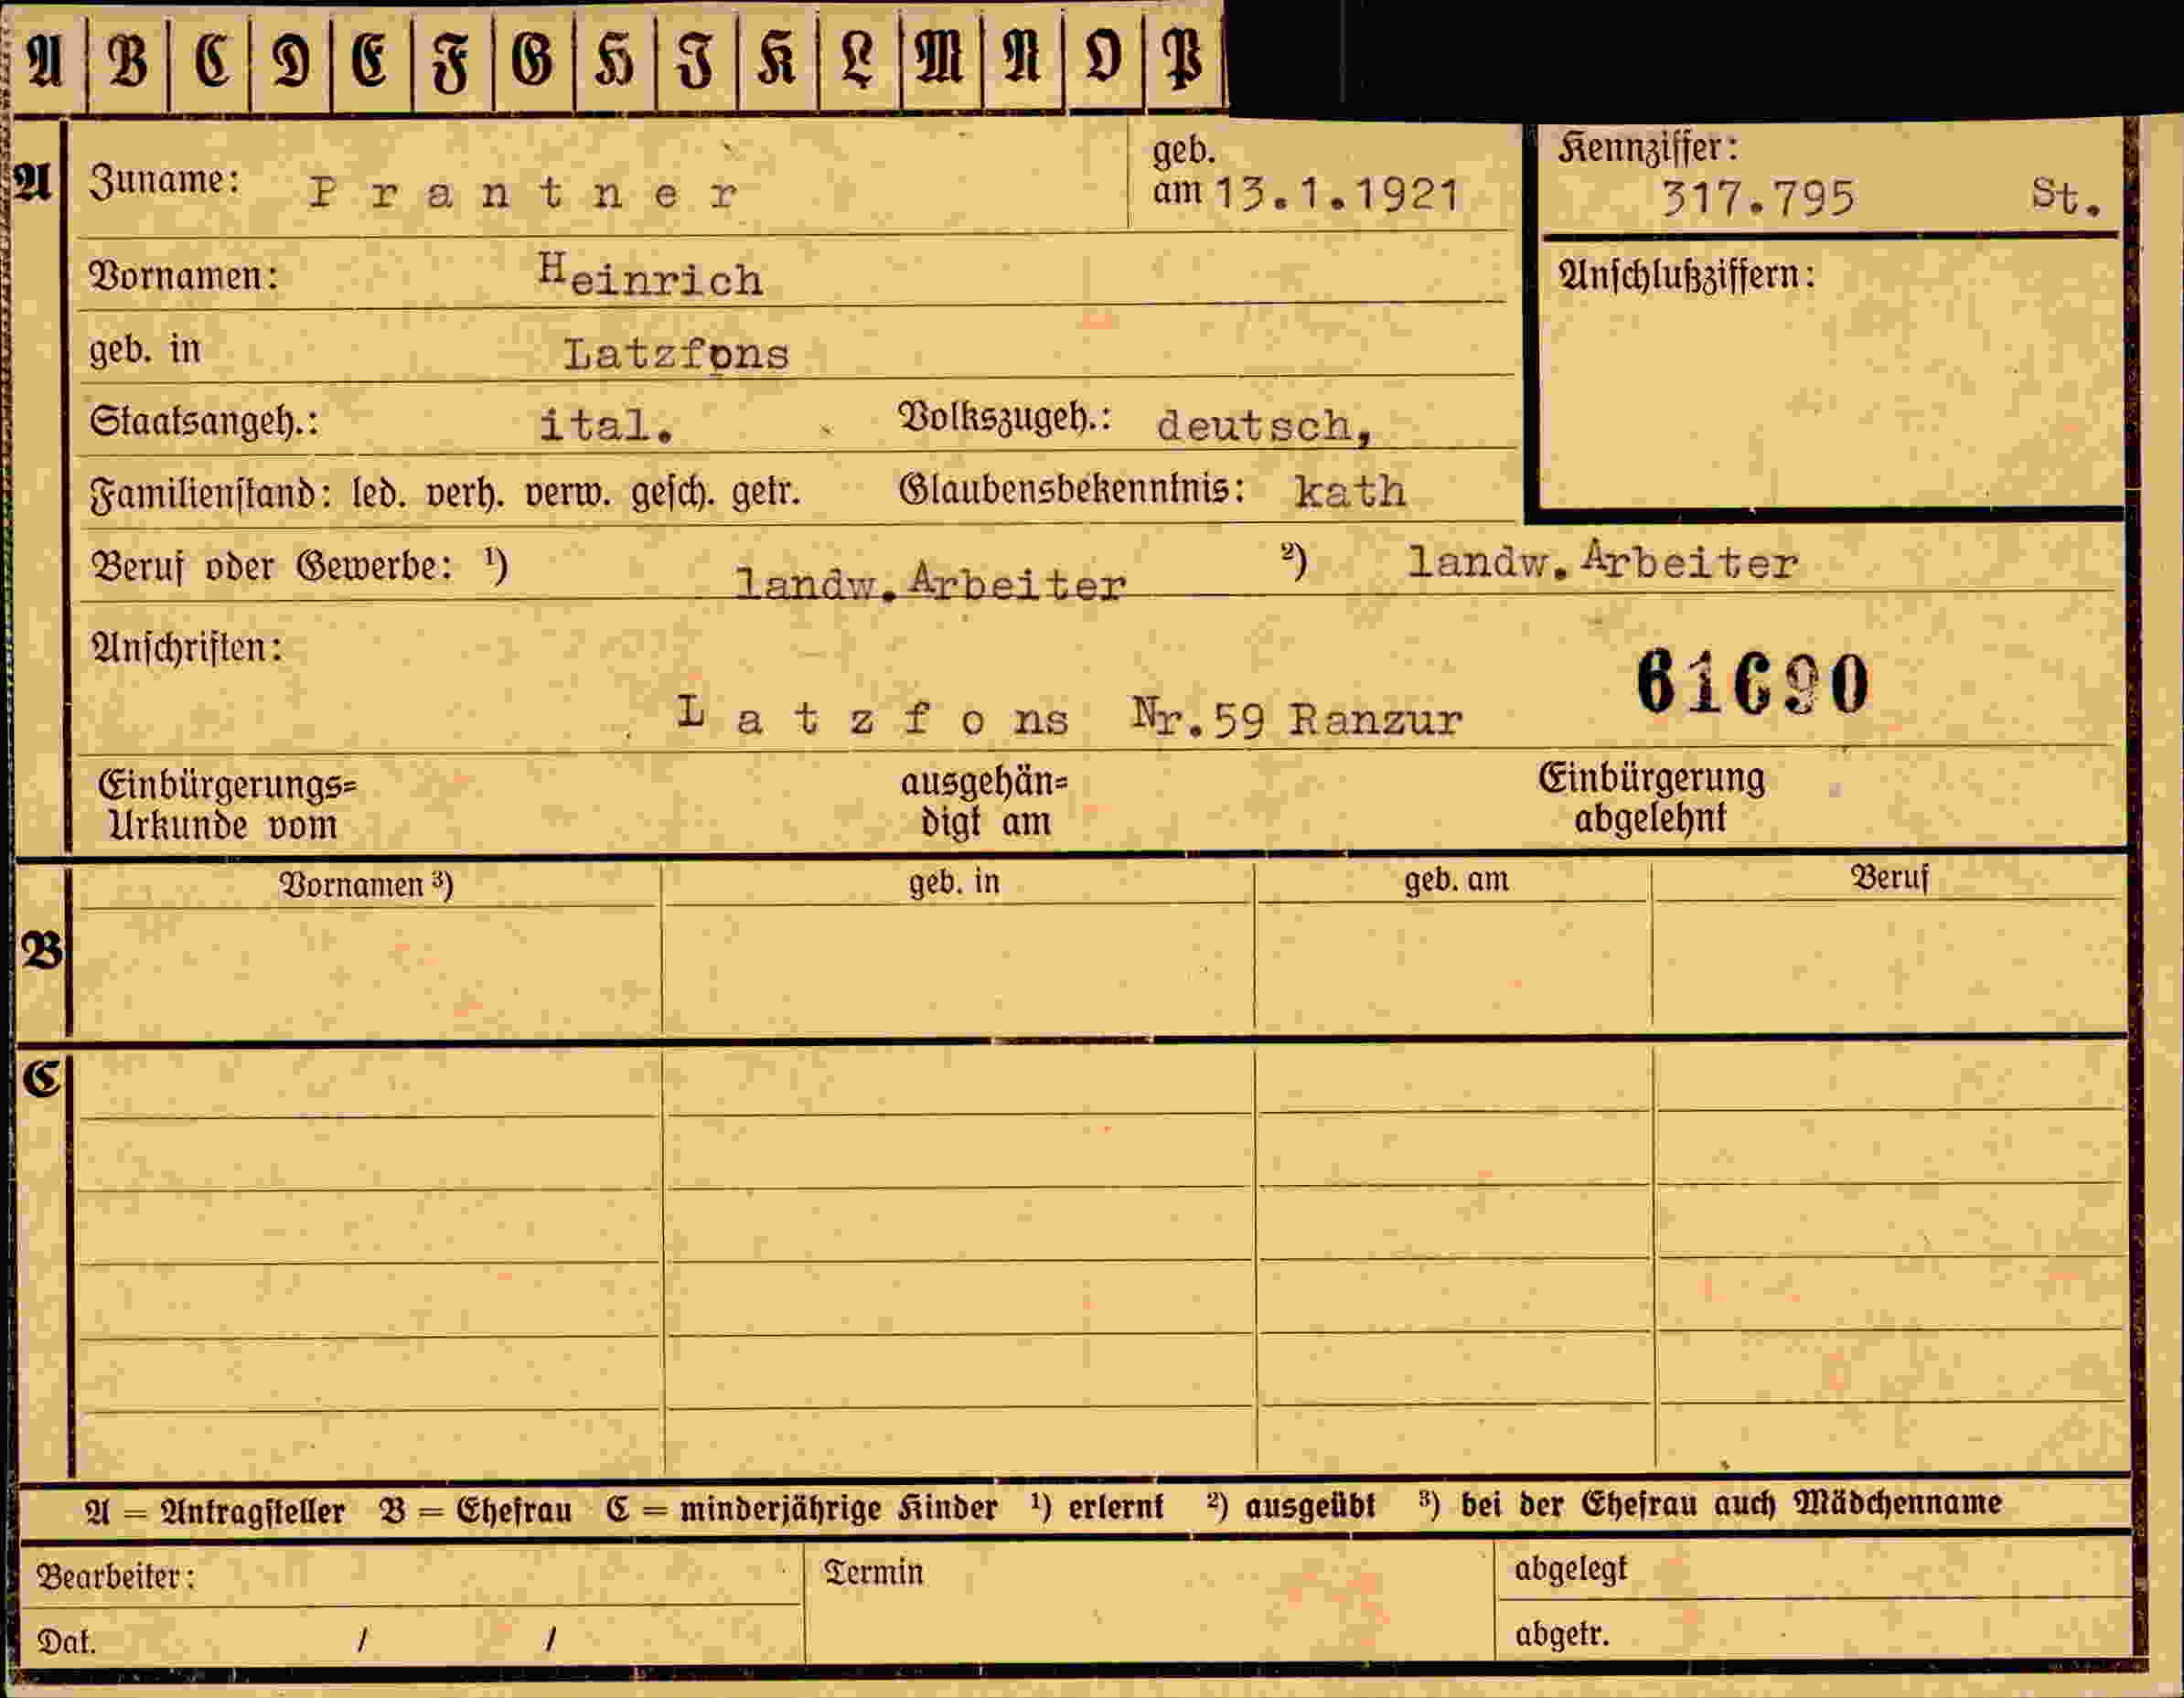 A B C D E F G H I K L M N O P
A Zuname: Prantner geb. am 13.1.1921 Kennziffer: 317.795 St.
Vornamen: Heinrich Anschlußziffern:
geb. in Latzfons
Staatsangeh.: ital. Volkszugeh.: deutsch,
Familienstand: led. verh. verw. gesch. getr. Glaubensbekenntnis: kath
Beruf oder Gewerbe: ¹) landw.Arbeiter ²) landw.Arbeiter
Anschriften: 61690
Latzfons Nr.59 Ranzur
Einbürgerungs= ausgehän= Einbürgerung
Urkunde vom digt am abgelehnt
B Vornamen ³) geb. in geb. am Beruf
C
A = Antragsteller B = Ehefrau C = minderjährige Kinder ¹) erlernt ²) ausgeübt ³) bei der Ehefrau auch Mädchenname
Bearbeiter: Termin abgelegt
Dat. / / abgetr.